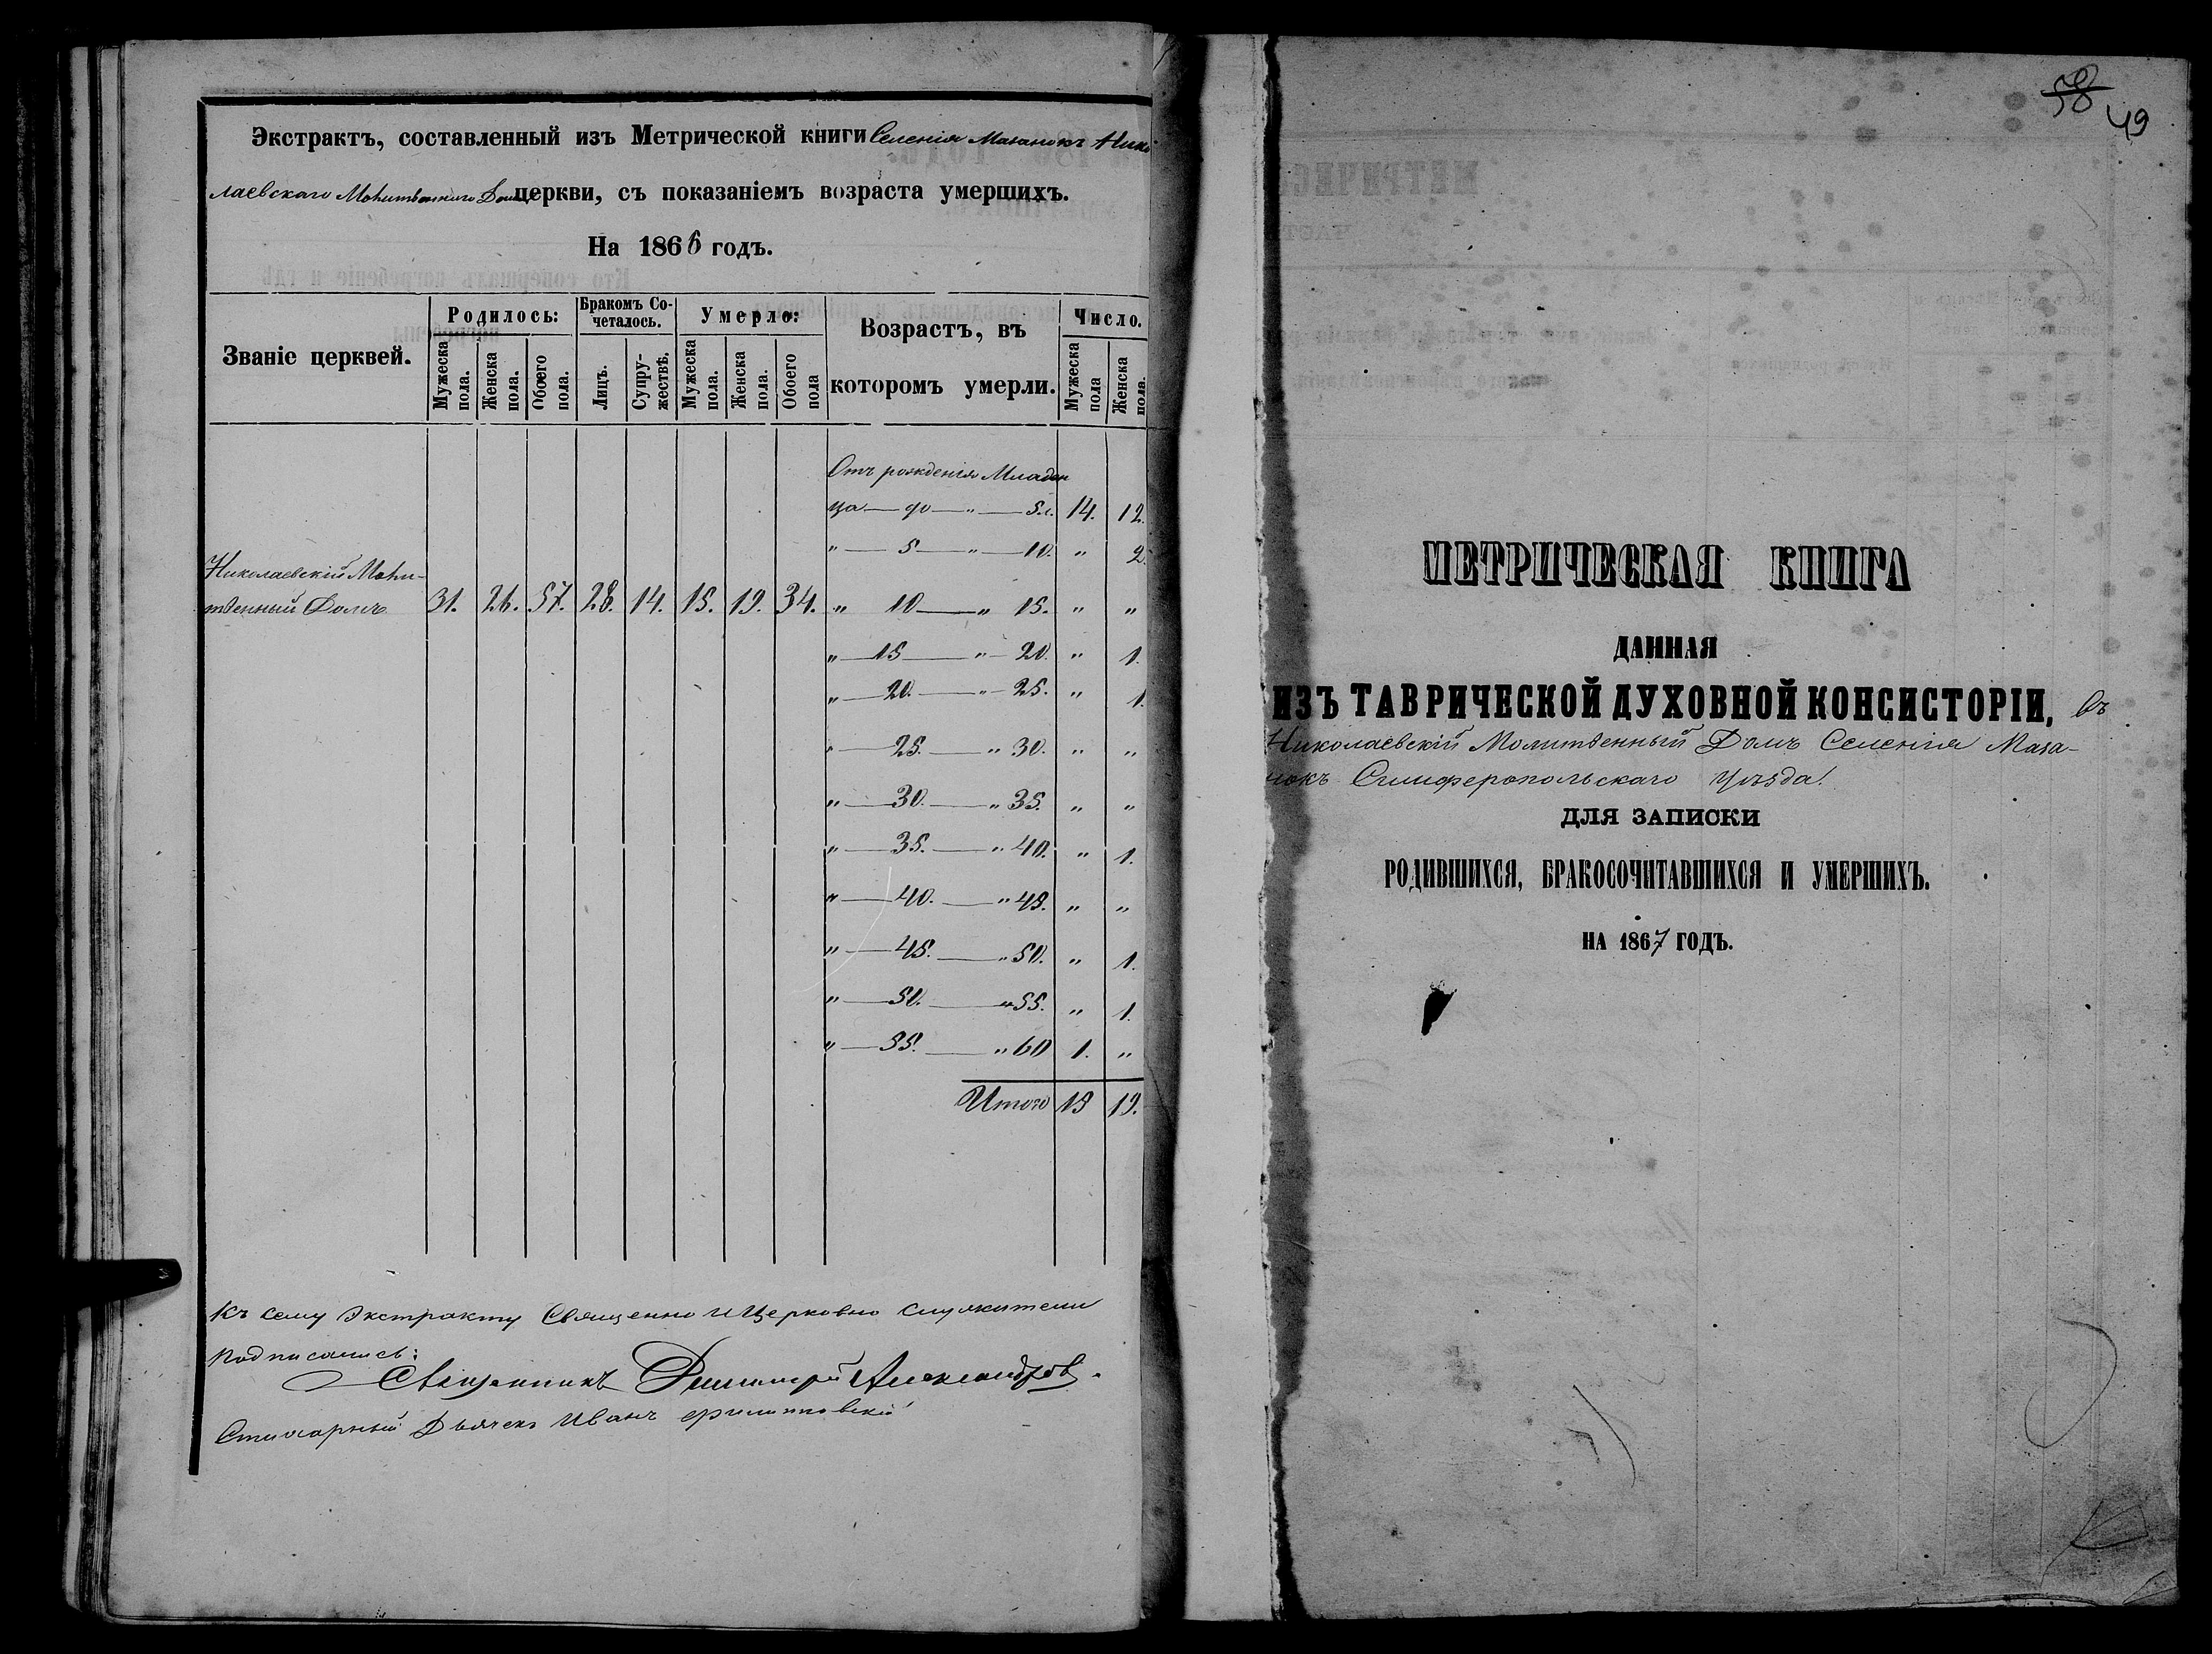 Экстрактъ, составленный изъ Метрической книги Селенія Мазанокъ Нико
лаевскаго Молитвеннаго Дома церкви, съ показаніемъ возраста умершихъ.
На 1866 годъ.
Званіе церквей. Родилось: Бракомъ Со-четалось. Умерло: Возрастъ, въ которомъ умерли. Число.
Мужеска пола. Женска пола. Обоего пола. Лицъ. Супру-жествъ. Мужеска пола. Женска пола. Обоего пола Мужеска пола Женска пола.
Отъ рожденія Младен
ца — до — " — 5 л. 14. 12.
" — 5 — " — 10. " 2.
Николаевскій Моли-
твенный Домъ 31. 26. 57. 28. 14. 15. 19. 34. " 10 — " 15. " "
" — 15 — " — 20. " 1.
" — 20. — " — 25. " 1.
" — 25. — " 30. " "
" — 30. — " 35. " "
" — 35. — " 40. " 1.
" — 40. — " 45. " "
" — 45. — " 50. " 1.
" — 50. — " 55. " 1.
" — 55. — " 60 1. "
Итого 15 19.
Къ сему Экстракту Священно и Церковно служители
подписались:
Священникъ Димитрій Александров.
Стихарный Дьячекъ Иванъ Филипповскій
58
49
МЕТРИЧЕСКАЯ КНИГА
ДАННАЯ
ИЗЪ ТАВРИЧЕСКОЙ ДУХОВНОЙ КОНСИСТОРІИ, въ
Николаевскій Молитвенный Домъ Селенія Маза-
нокъ Симферопольскаго уѣзда.
ДЛЯ ЗАПИСКИ
РОДИВШИХСЯ, БРАКОСОЧИТАВШИХСЯ И УМЕРШИХЪ.
НА 1867 ГОДЪ.